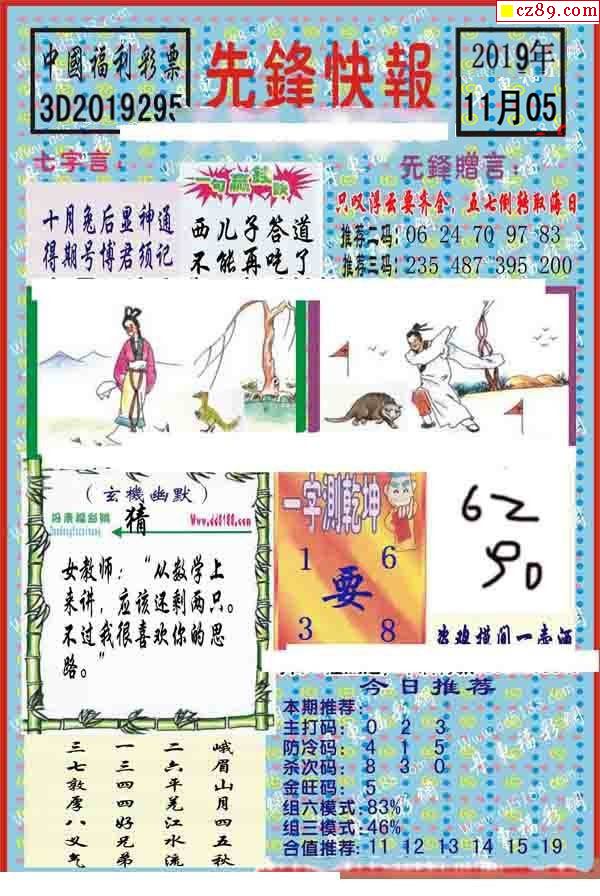 cz89.com
中國福利彩票
3D2019295
先鋒快報
2019年
11月05
七字言:
十月兔后显神通
得期号博君须记
一句赢起诀
西儿子答道
不能再吃了
先鋒贈言:
只叹浮云要齐全,五七倒转取海日
推荐二码:06 24 70 97 83
推荐三码:235 487 395 200
(玄機幽默)
猜
Www.dd8188.com
女教师:“从数学上
来讲,应该还剩两只。
不过我很喜欢你的思
路。”
一字測乾坤
1 6
要
3 8
62
90
今日推荐
本期推荐:
主打码: 0 2 3
防冷码: 4 1 5
杀次码: 8 3 0
金旺码: 5
组六模式:83%
组三模式:46%
合值推荐:11 12 13 14 15 19
峨眉山月四五秋
二六平羌江水流
一三四四好兄弟
三七敦厚八义气